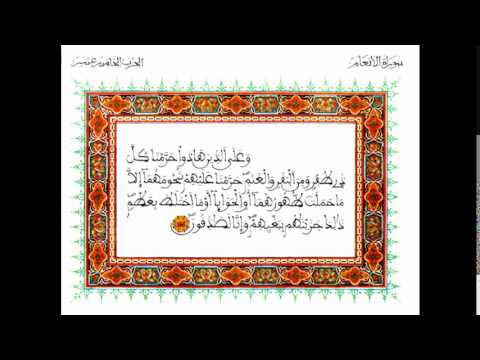 سورة الأنعام
الحزب الخامس عشر
وَعَلَى ٱلذِينَ هَادُواْ حَرَّمْنَا كُلَّ
ذِے ظُفُرٍ وَمِنَ ٱلْبَقَرِ وَٱلْغَنَمِ حَرَّمْنَا عَلَيْهِمْ شُحُومَهُمَآ إِلَّا
مَا حَمَلَتْ ظُهُورُهُمَآ أَوِ ٱلْحَوَايَآ أَوْ مَا ٱخْتَلَطَ بِعَظْمٍ
ذَٰلِكَ جَزَيْنَٰهُم بِبَغْيِهِمْ وَإِنَّا لَصَٰدِقُونَ